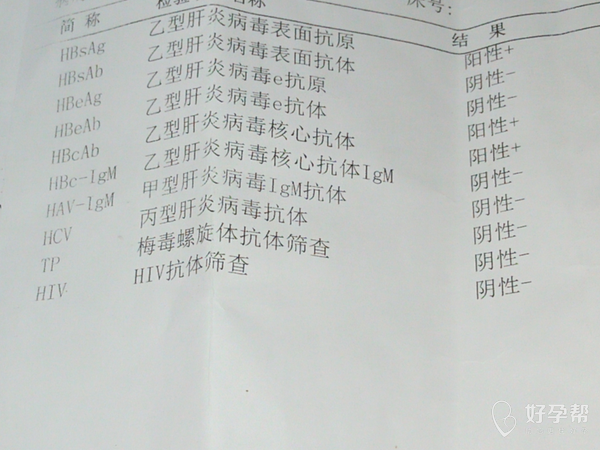 床号:
简 称 检验 名称 结 果
HBsAg 乙型肝炎病毒表面抗原 阳性+
HBsAb 乙型肝炎病毒表面抗体 阴性-
HBeAg 乙型肝炎病毒e抗原 阴性-
HBeAb 乙型肝炎病毒e抗体 阳性+
HBcAb 乙型肝炎病毒核心抗体 阳性+
HBc-IgM 乙型肝炎病毒核心抗体IgM 阴性-
HAV-IgM 甲型肝炎病毒IgM抗体 阴性-
HCV 丙型肝炎病毒抗体 阴性-
TP 梅毒螺旋体抗体筛查 阴性-
HIV HIV抗体筛查 阴性-
好孕帮